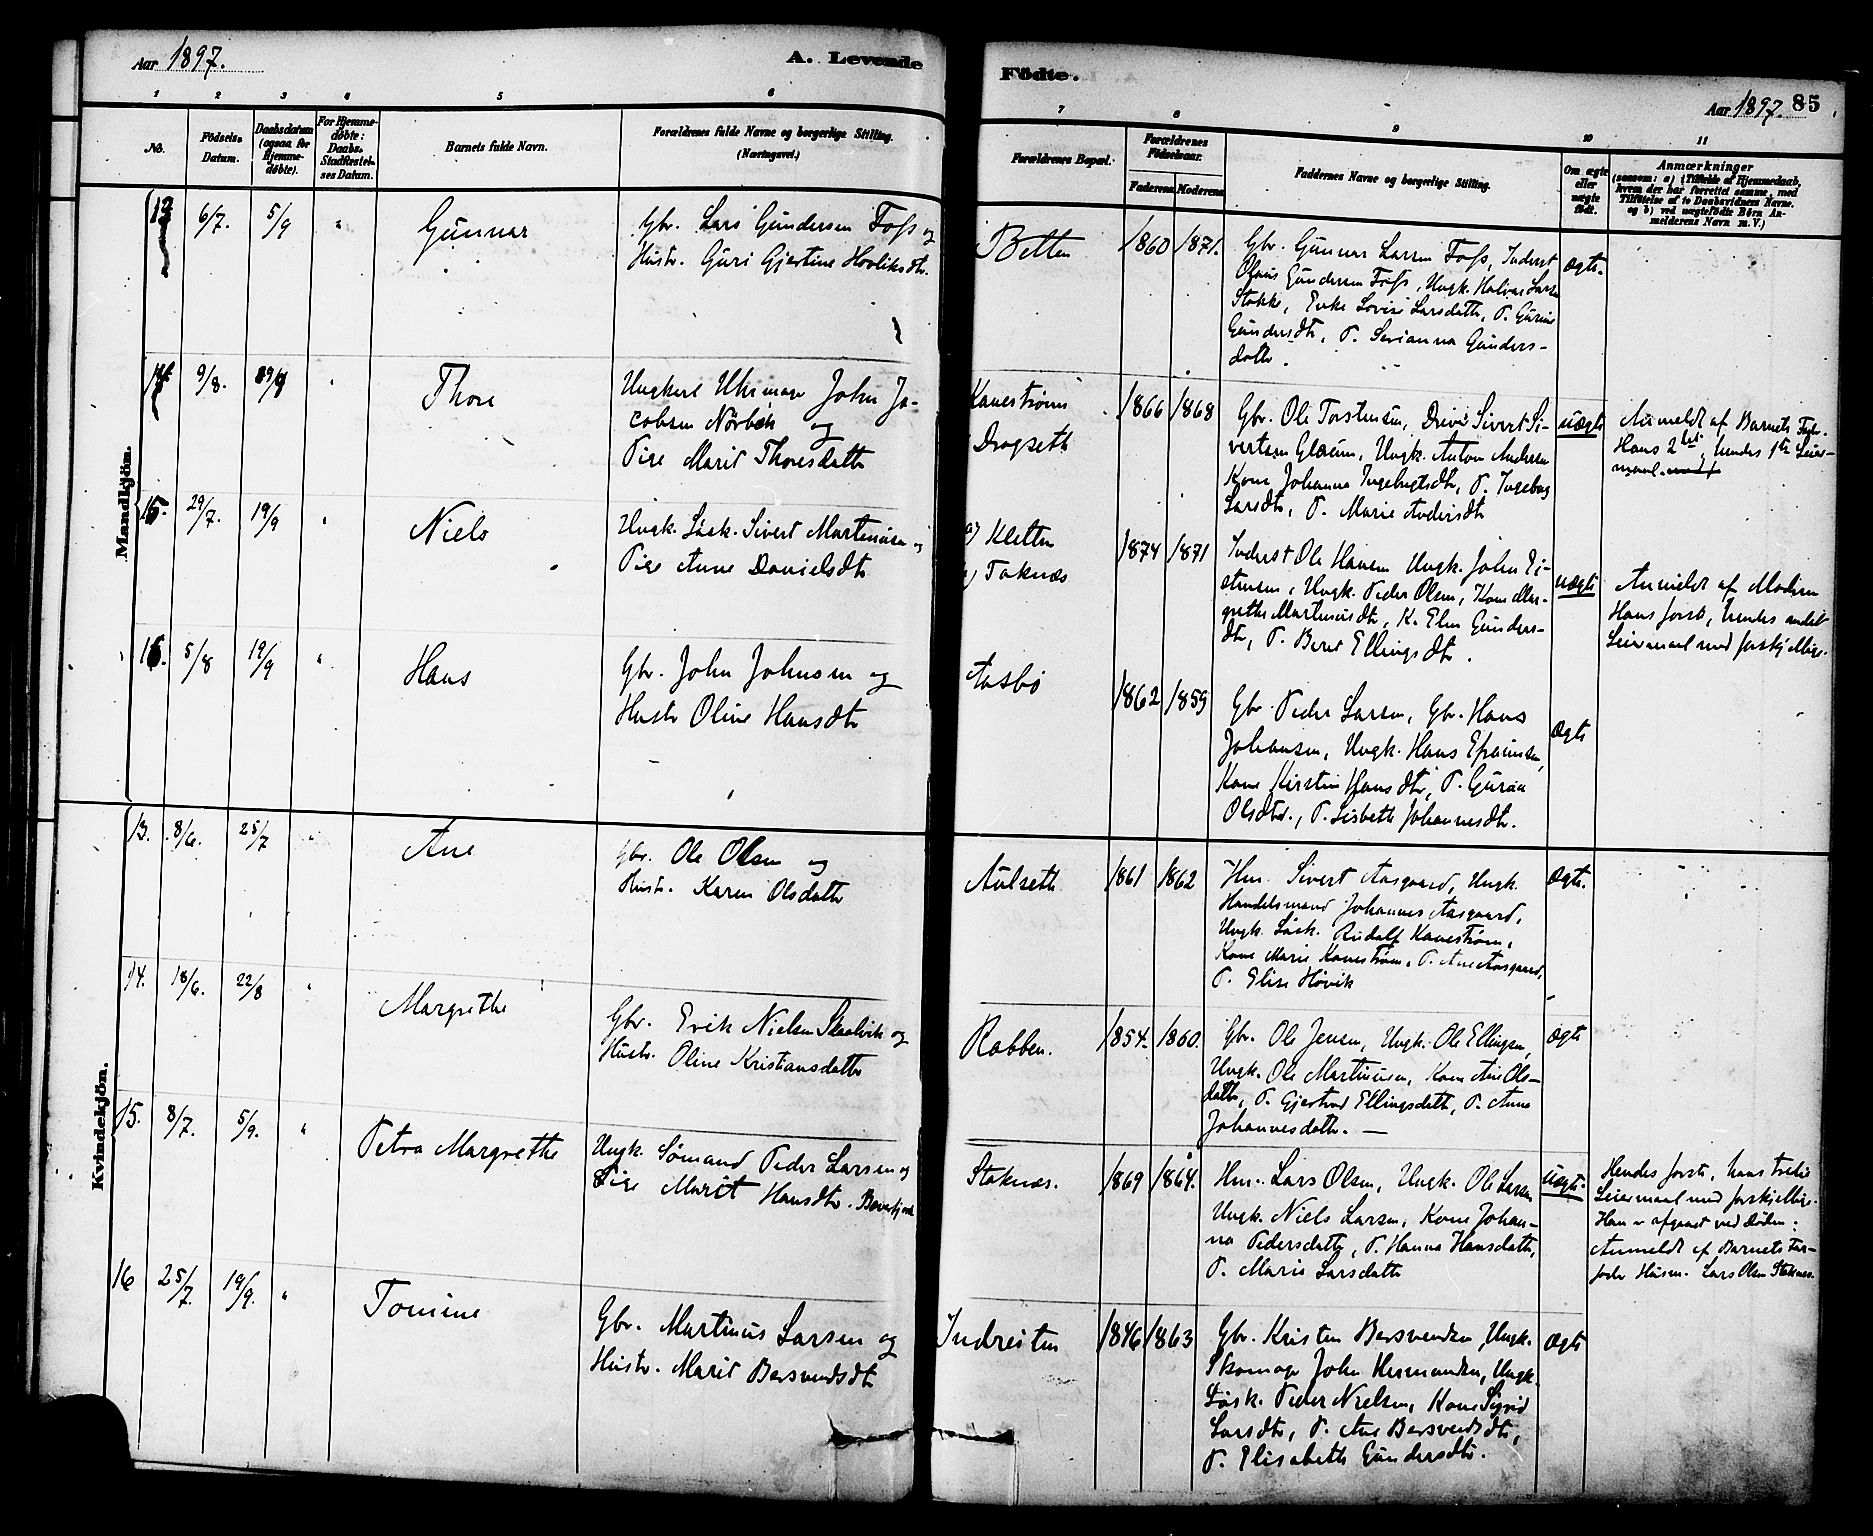 Aar 1897.
A. Levende
Födte.
Aar 1897. 85
1 2 3 4 5 6
7 8 9 10 11
No.
Födsels-
Datum.
Daabsdatum
(ogsaa for
Hjemme-
döbte).
For Hjemme-
döbte:
Daabs-
Stadfæstel-
ses Datum.
Barnets fulde Navn.
Forældrenes fulde Navne og borgerlige Stilling.
(Næringsvei.)
Forældrenes Bopæl.
Forældrenes
Födselsaar.
Faderens. Moderens.
Faddernes Navne og borgerlige Stilling.
Om ægte
eller
uægte
födt.
Anmærkninger
(saasom: a) i Tilfælde af Hjemmedaab,
hvem der har forrettet samme, med
Tilföielse af to Daabsvidners Navne.
og b) ved uægtefödte Börn An-
melderens Navn m. V.)
Mandkjön.
13 6/7. 5/9 " Gunnar
Gbr. Lars Gundersen Foss og
Hustr. Guri Gjertine Hovliksdtr.
Betten 1860 1871.
Gbr. Gunnar Larsen Foss, Inderst
Olaus Gundersen Foss, Ungk. Halvar Larsen
Stokke, Enke Lovise Larsdatter, P. Gurine
Gundersdtr, P. Serianna Gunders-
datter.
Ægte.
14 9/8. " Thore
Ungkarl Uhrmager John Ja-
cobsen Nørbæk og
Pige Marit Thoresdatter
Kanestrøm
Dragseth
1866 1868
Gbr. Ole Torstensen, Sivert Si-
vertsen Glærum, Ungk. Anton Andersen
Kone Johanna Ingebrigtsdtr, P. Ingeborg
Larsdtr, P. Marie Andersdtr
uægte
Anmeldt af Barnets Fader.
Hans 2det, hendes 1ste Leier-
maal.
15. 29/7. 19/9 " Niels
Ungk. Løsk. Sivert Martinusen og
Pige Anne Danielsdtr
a) Kletten
b) Taknæs
1874 1871
Inderst Ole Hansen Ungk. John Ei-
stensen, Ungk. Peder Olsen, Kone Mar-
grethe Martinusdtr, K. Elen Gunders-
dtr, P. Beret Ellingsdtr.
uægte
Anmeldt af Moderen
Hans første, hendes andet
Leiermaal med forskjellige.
16. 5/8 19/9 " Hans
Gbr. John Johnsen og
Hustr Oline Hansdtr
Aasbø 1862 1859
Gbr. Peder Larsen, Gbr. Hans
Johansen, Ungk. Hans Efraimsen,
Kone Kirstin Hansdtr, P. Guroa
Olsdtr., P. Lisbeth Johannesdtr.
Ægte
Kvindekjön.
13. 8/6. 25/7 " Ane
Gbr. Ole Olsen og
Hustr. Karen Olsdatter
Aulseth 1861 1862
Hm. Sivert Aasgaard, Ungk.
Handelsmand Johannes Aasgaard,
Ungk. Løsk. Rudolf Kanestrøm,
Kone Marie Kanestrøm, P. Ane Aasgaard,
P. Elise Høvik
Ægte.
14. 18/6. 22/8 " Margrethe
Gbr. Erik Nielsen Skalvik og
Hustr. Oline Kristiansdatter
Rabben. 1854. 1860.
Gbr. Ole Jensen, Ungk. Ole Ellingsen,
Ungk. Ole Martinusen, Kone Ane Ols-
datter, P. Gjertrud Ellingsdatter, P. Anne
Johannesdatter. —
Ægte
15. 8/7. 5/9. " Petra Margrethe
Ungk. Sømand Peder Larsen og
Pige Marit Hansdtr. Bæverfjord
Stoknæs. 1869 1864.
Hm. Lars Olsen, Ungk. Ole Larsen
Ungk. Niels Larsen, Kone Johan-
na Pedersdatter, P. Hanna Hansdatter,
P. Marie Larsdatter
uægte.
Hendes første, hans tredie
Leiermaal med forskjellige.
Han er afgaaet ved Døden.
Anmeldt af Barnets Far-
foder Husm. Lars Olsen Stoknæs.
16 25/7. 19/9. " Tomine
Gbr. Martinus Larsen og
Hustr. Marit Bersvendsdtr
Indreiten 1846 1863
Gbr. Kristen Bersvendsen, Ungk.
Skomager John Hermandsen, Ungk.
Løsk. Peder Nielsen, Kone Sigrid
Larsdtr, P. Ane Bersvendsdtr,
P. Elisabeth Gundersdtr.
Ægte